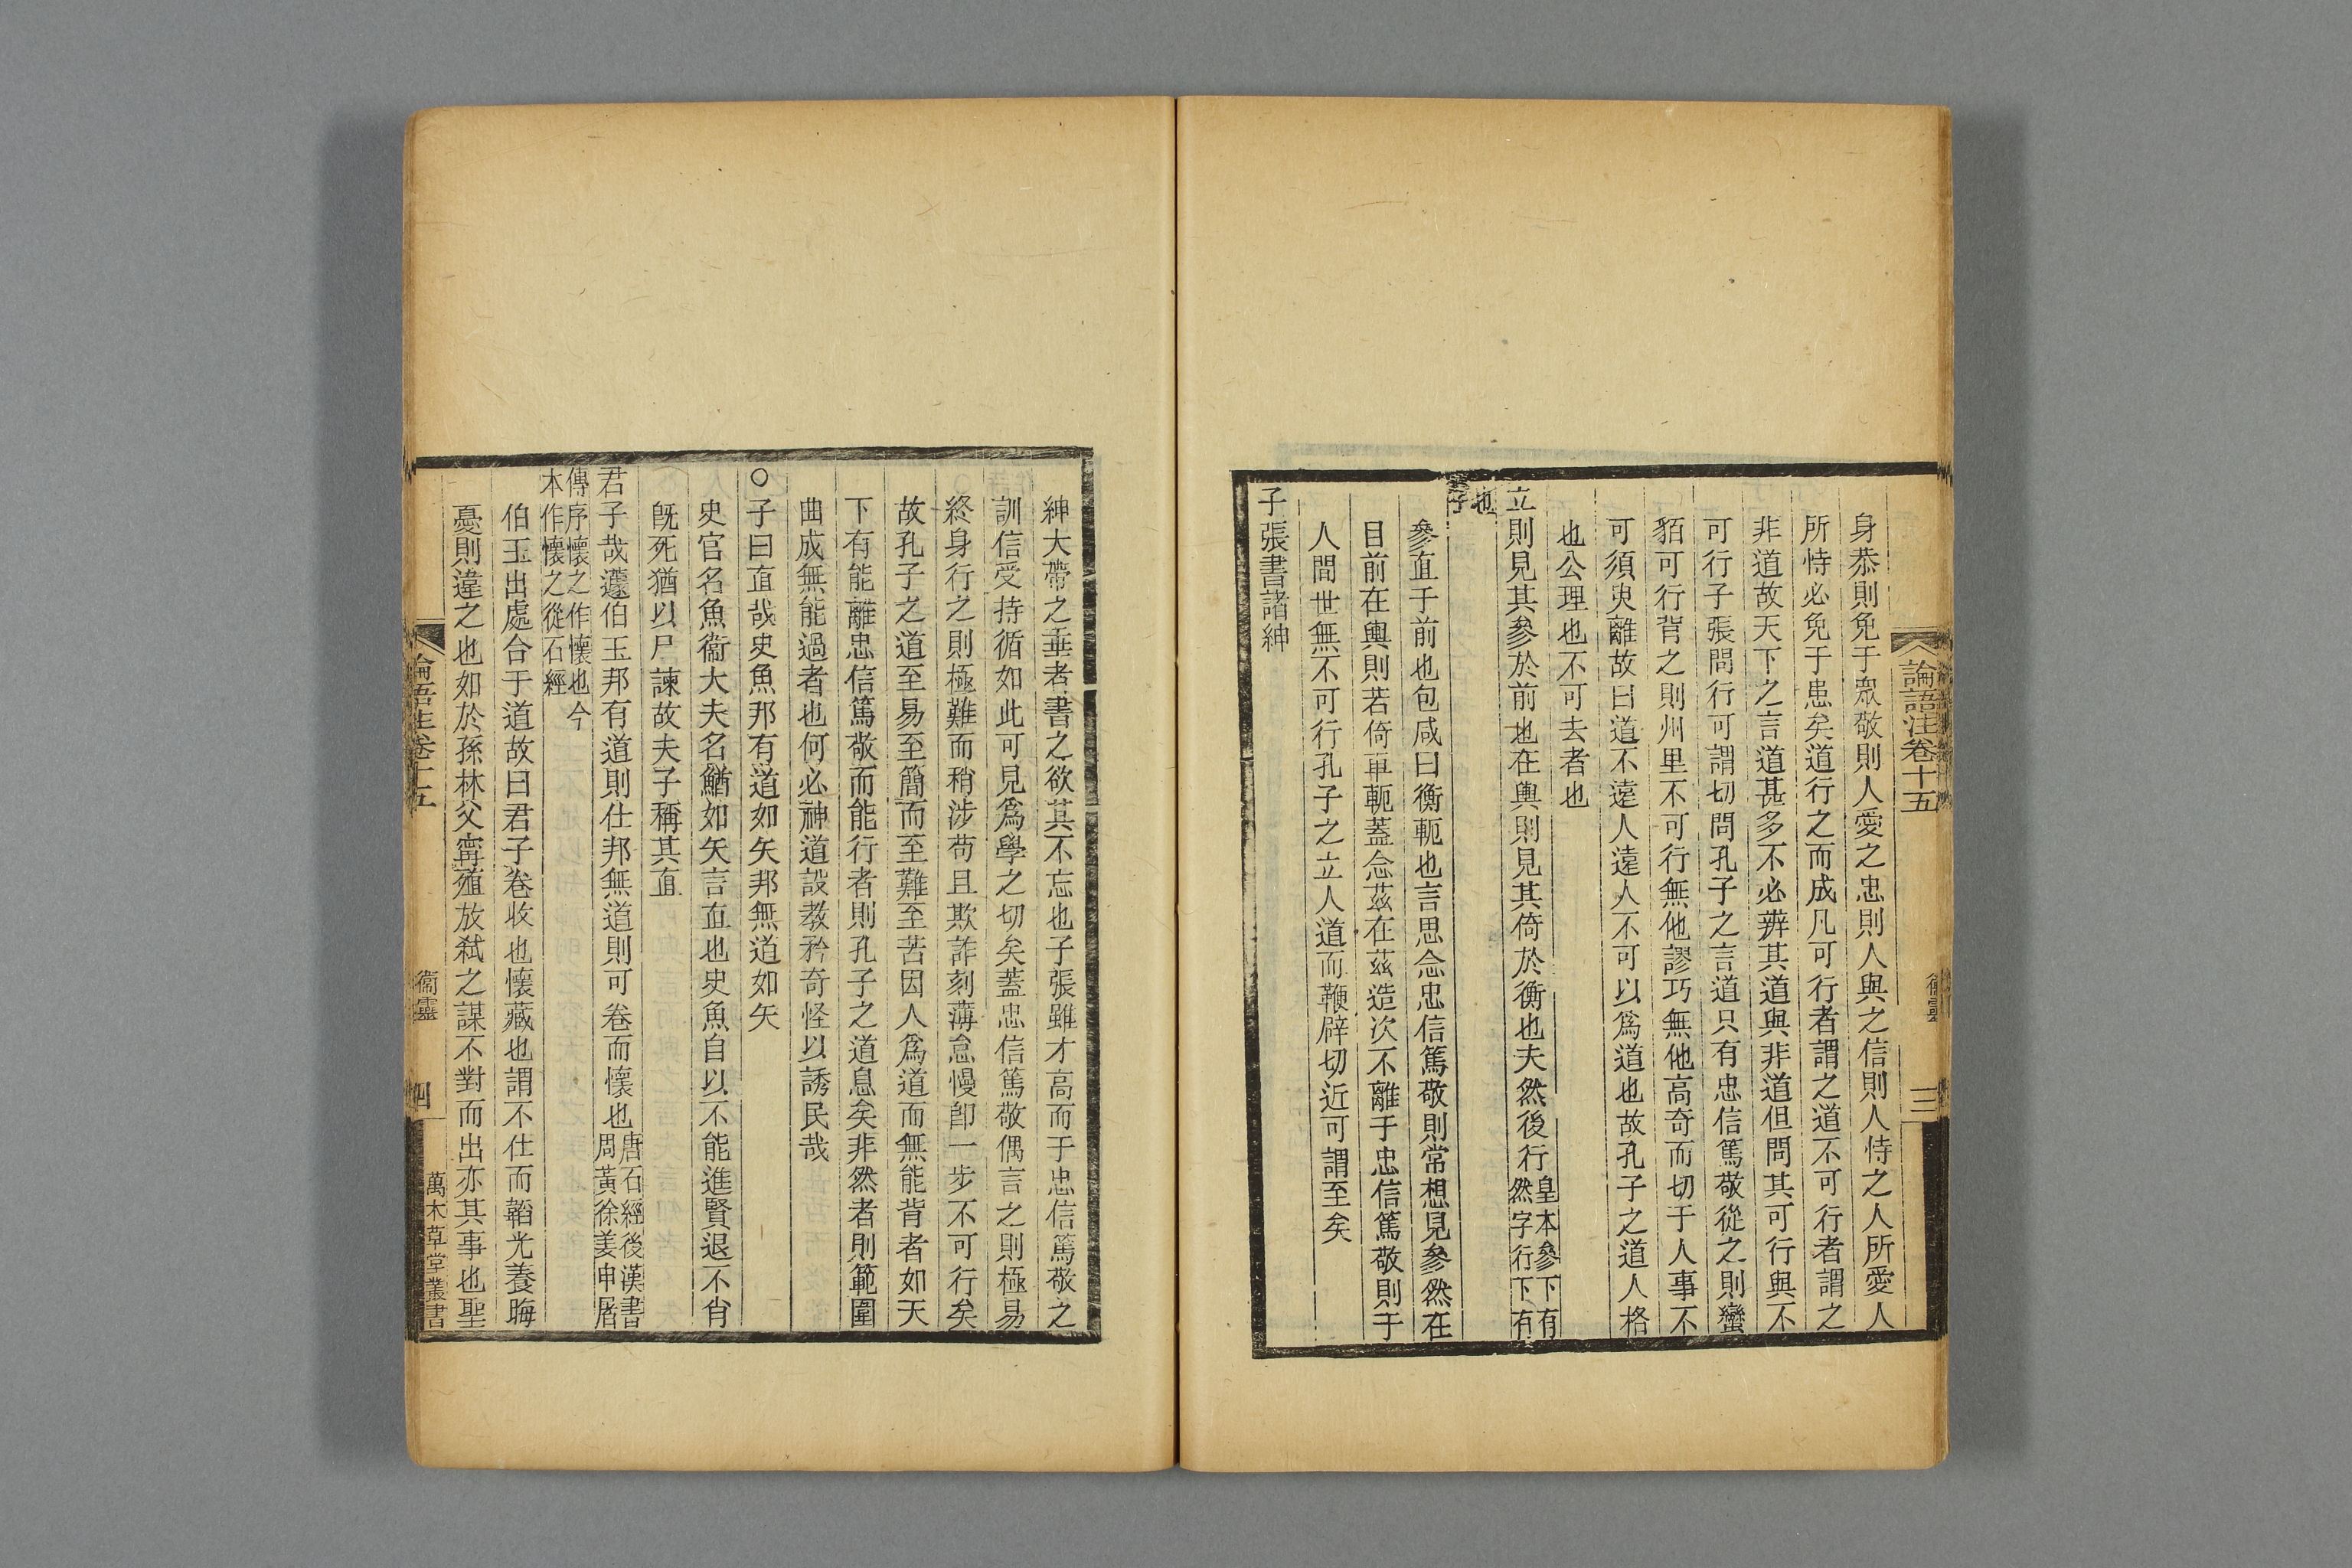 論語注卷十五
衞靈
三
身恭則免于衆敬則人愛之忠則人與之信則人恃之人所愛人
所恃必免于患矣道行之而成凡可行者謂之道不可行者謂之
非道故天下之言道甚多不必辨其道與非道但問其可行與不
可行子張問行可謂切問孔子之言道只有忠信篤敬從之則蠻
貊可行背之則州里不可行無他謬巧無他高奇而切于人事不
可須臾離故曰道不遠人遠人不可以爲道也故孔子之道人格
也公理也不可去者也
立則見其參於前也在輿則見其倚於衡也夫然後行皇本參下有
然字行下有
也
子
參直于前也包咸曰衡軛也言思念忠信篤敬則常想見參然在
目前在輿則若倚車軛蓋念茲在茲造次不離于忠信篤敬則于
人間世無不可行孔子之立人道而鞭辟切近可謂至矣
子張書諸紳
紳大帶之垂者書之欲其不忘也子張雖才高而于忠信篤敬之
訓信受持循如此可見爲學之切矣蓋忠信篤敬偶言之則極易
終身行之則極難而稍涉苟且欺詐刻薄怠慢卽一步不可行矣
故孔子之道至易至簡而至難至苦因人爲道而無能背者如天
下有能離忠信篤敬而能行者則孔子之道息矣非然者則範圍
曲成無能過者也何必神道設教矜奇怪以誘民哉
○子曰直哉史魚邦有道如矢邦無道如矢
史官名魚衞大夫名鰌如矢言直也史魚自以不能進賢退不肖
旣死猶以尸諫故夫子稱其直
君子哉蘧伯玉邦有道則仕邦無道則可卷而懷也唐石經後漢書
周黃徐姜申屠
傳序懷之作懷也今
本作懷之從石經
伯玉出處合于道故曰君子卷收也懷藏也謂不仕而韜光養晦
憂則違之也如於孫林父甯殖放弒之謀不對而出亦其事也聖
論語注卷十五
衞靈
四
萬木草堂叢書